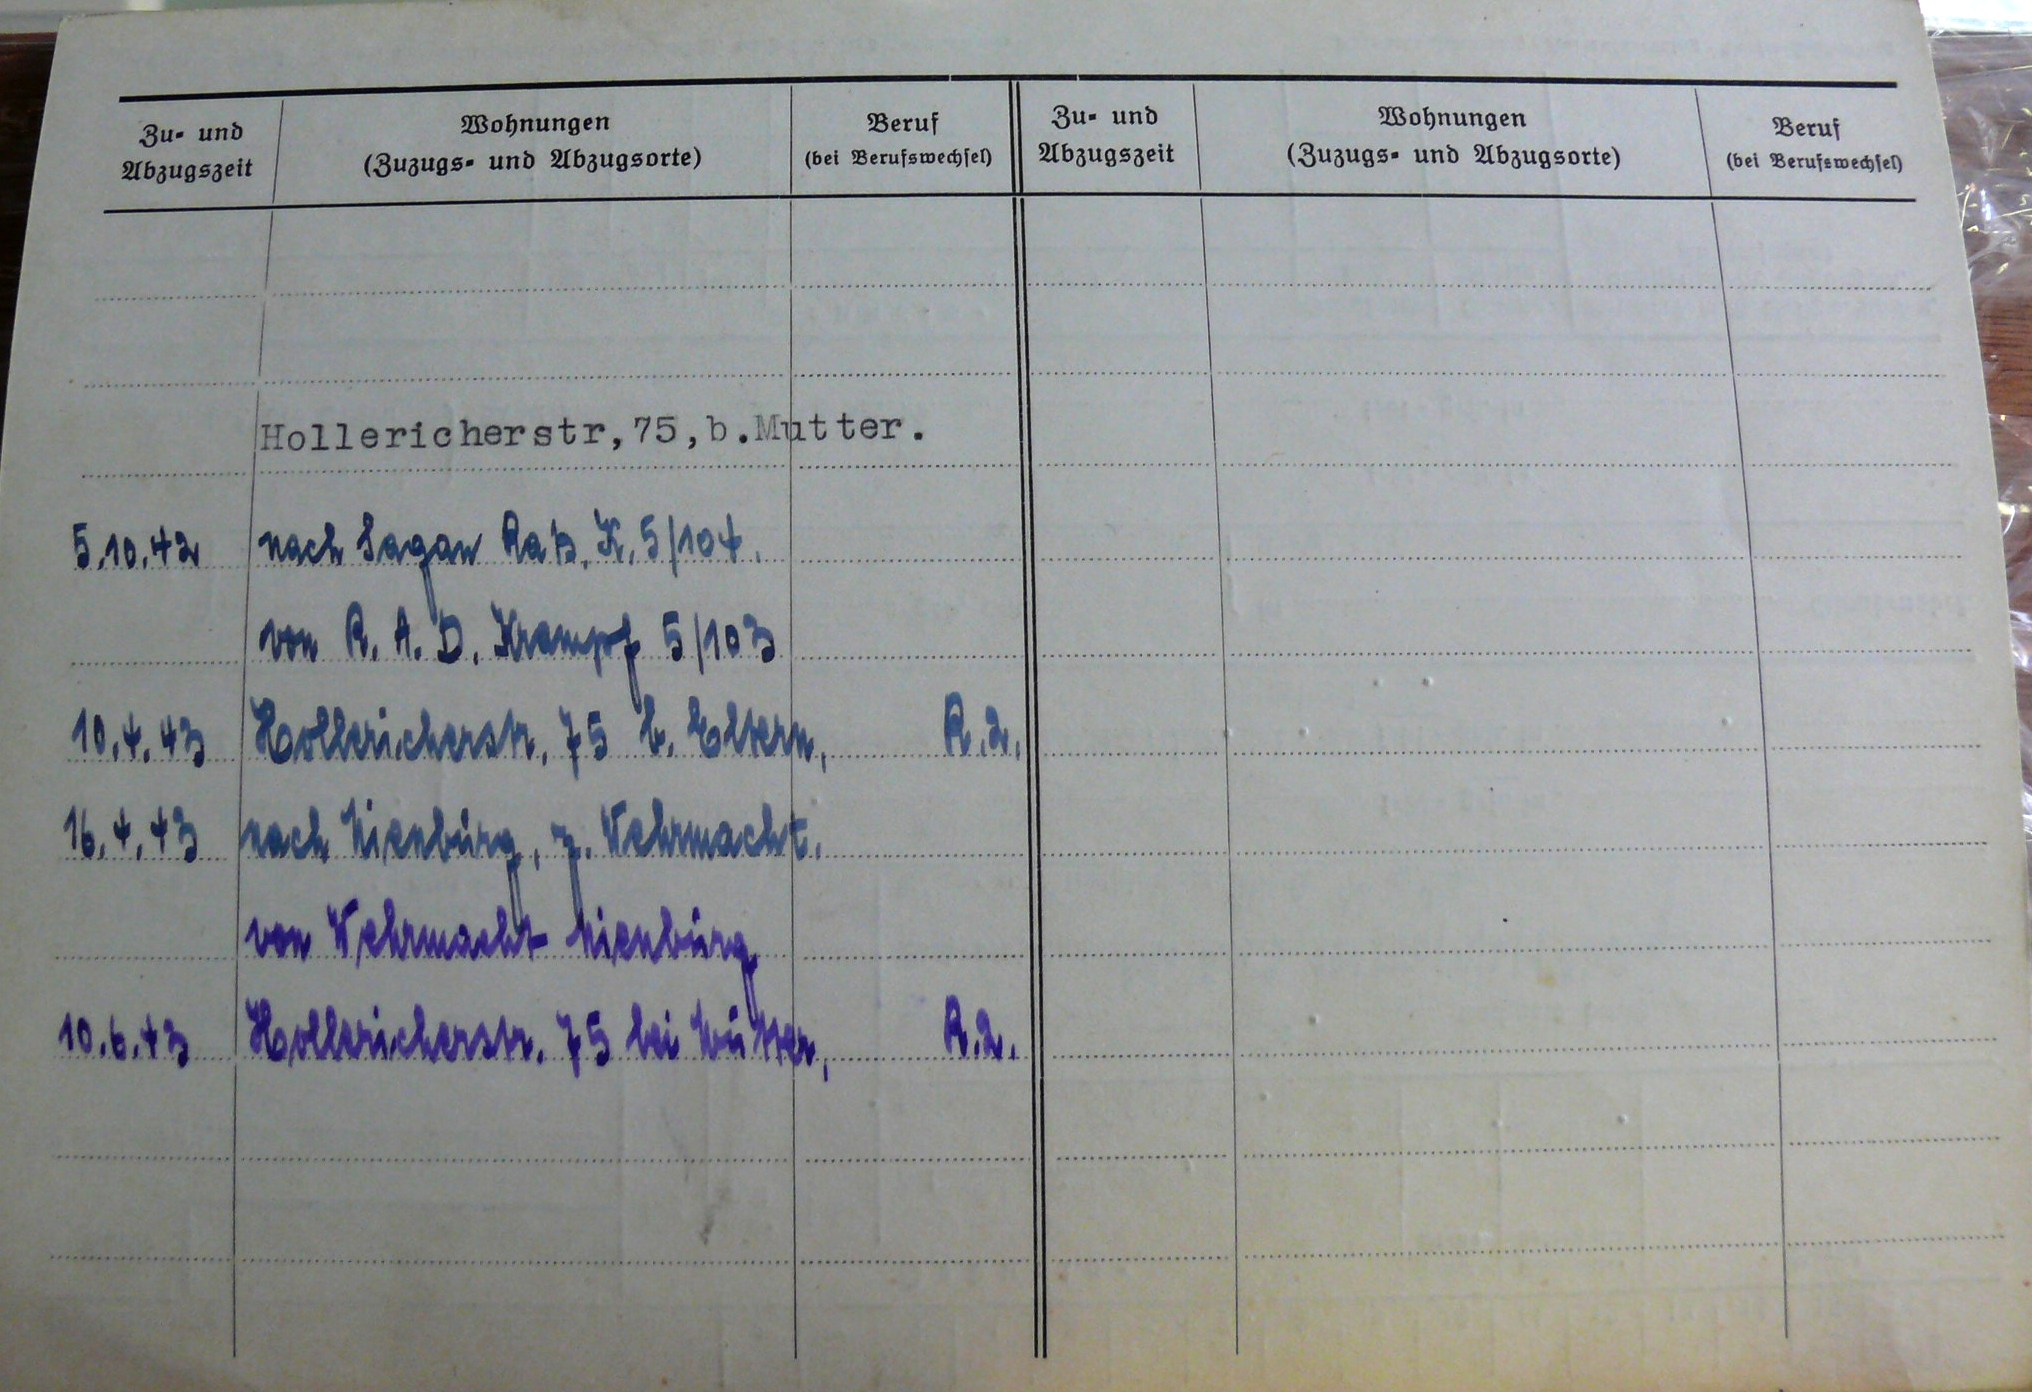 Zu- und Abzugszeit
Wohnungen (Zuzugs- und Abzugsorte)
Beruf (bei Berufswechsel)
Zu- und Abzugszeit
Wohnungen (Zuzugs- und Abzugsorte)
Beruf (bei Berufswechsel)
Hollericherstr,75,b.Mutter.
5.10.42 nach Sagan K. 5/104.
von R. A. D. Krampf 5/103
10.4.43 Hollericherstr. 75 b. Eltern, R.2.
16.4.43 nach Nienburg, z. Wehrmacht.
von Wehrmacht Nienburg
10.6.43 Hollericherstr. 75 bei Mutter, R.2.